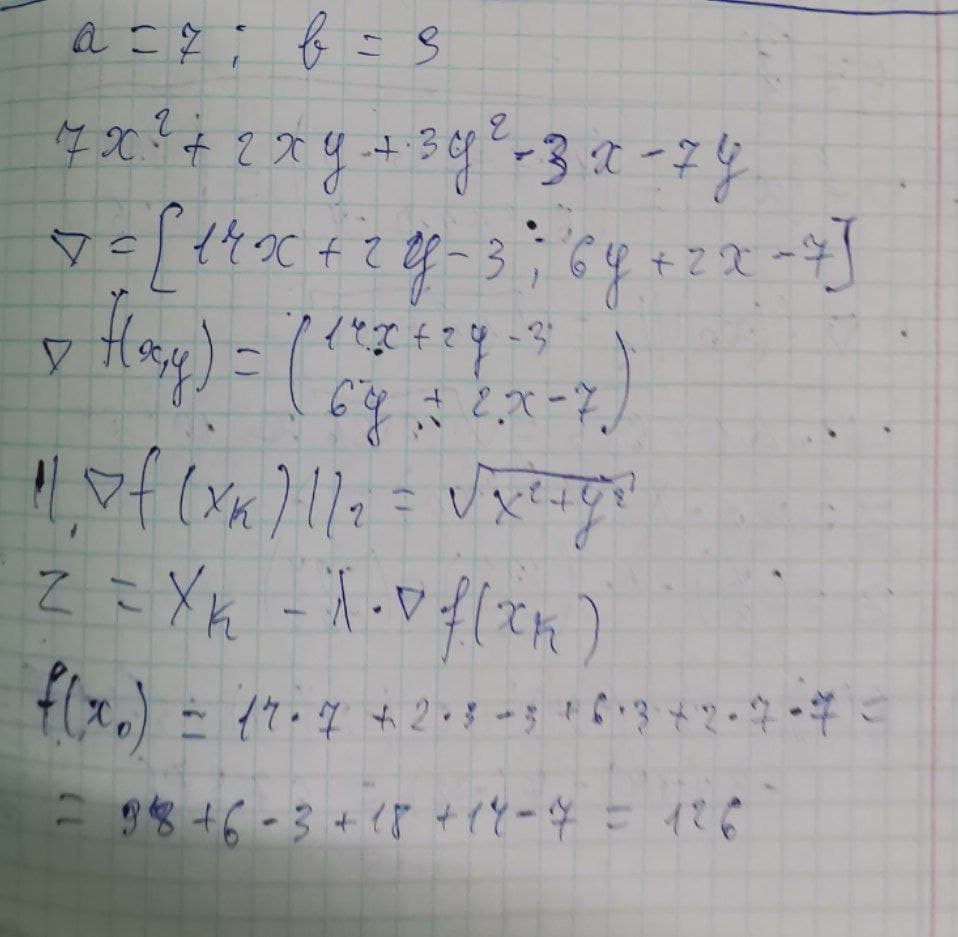 a = 7 ; b = 3
7x² + 2xy + 3y² - 3x - 7y
∇ = [14x + 2y - 3 ; 6y + 2x - 7]
∇ f(x,y) = (14x + 2y - 3
6y + 2x - 7)
||∇f(x_K)||₂ = √x² + y²
z = x_K - λ · ∇f(x_K)
f(x₀) = 14·7 + 2·3 - 3 + 6·3 + 2·7 - 7 =
= 98 + 6 - 3 + 18 + 14 - 7 = 126